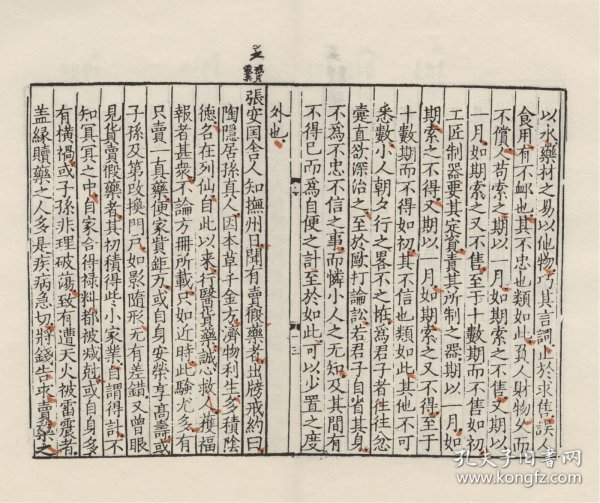 以水藥材之易以他物巧其言詞止於求售誤人
食用有不卹也其不忠也類如此負人財物久而
不償人苟索之期以一月如期索之不售又期以
一月如期索之又不售至于十數期而不售如初
工匠制器要其定資責其所制之器期以一月如
期索之不得又期以一月如期索之又不得至于
十數期而不得如初其不信也類如此其他不可
悉數小人朝夕行之畧不之恠爲君子者往往忿
嚏直欲深治之至於毆打論訟若君子自省其身
不為不忠不信之事而憐小人之无知及其間有
不得已而爲自便之計至於如此可以少置之度
外也
張安国舍人知撫州日聞有賣假藥者出牓戒約曰
陶隱居孫真人因本草千金方濟物利生多積陰
德名在列仙自此以来行醫貨藥誠心救人獲福
報者甚衆不論方冊所載只如近時此驗尤多有
只賣一真藥便家赀鉅万或自身安榮享髙壽或
子孫及第改換門戶如影隨形无有差錯又曾眼
見貨賣假藥者其初積得些小家業自謂得計不
知冥冥之中自家合得祿料都被减剋或自身多
有橫禍或子孫非理破蕩致有遭天火被雷震者
盖緣贖藥之人多是疾病急切將錢告求賣藥之
孔夫子旧书网
www.kongfz.com